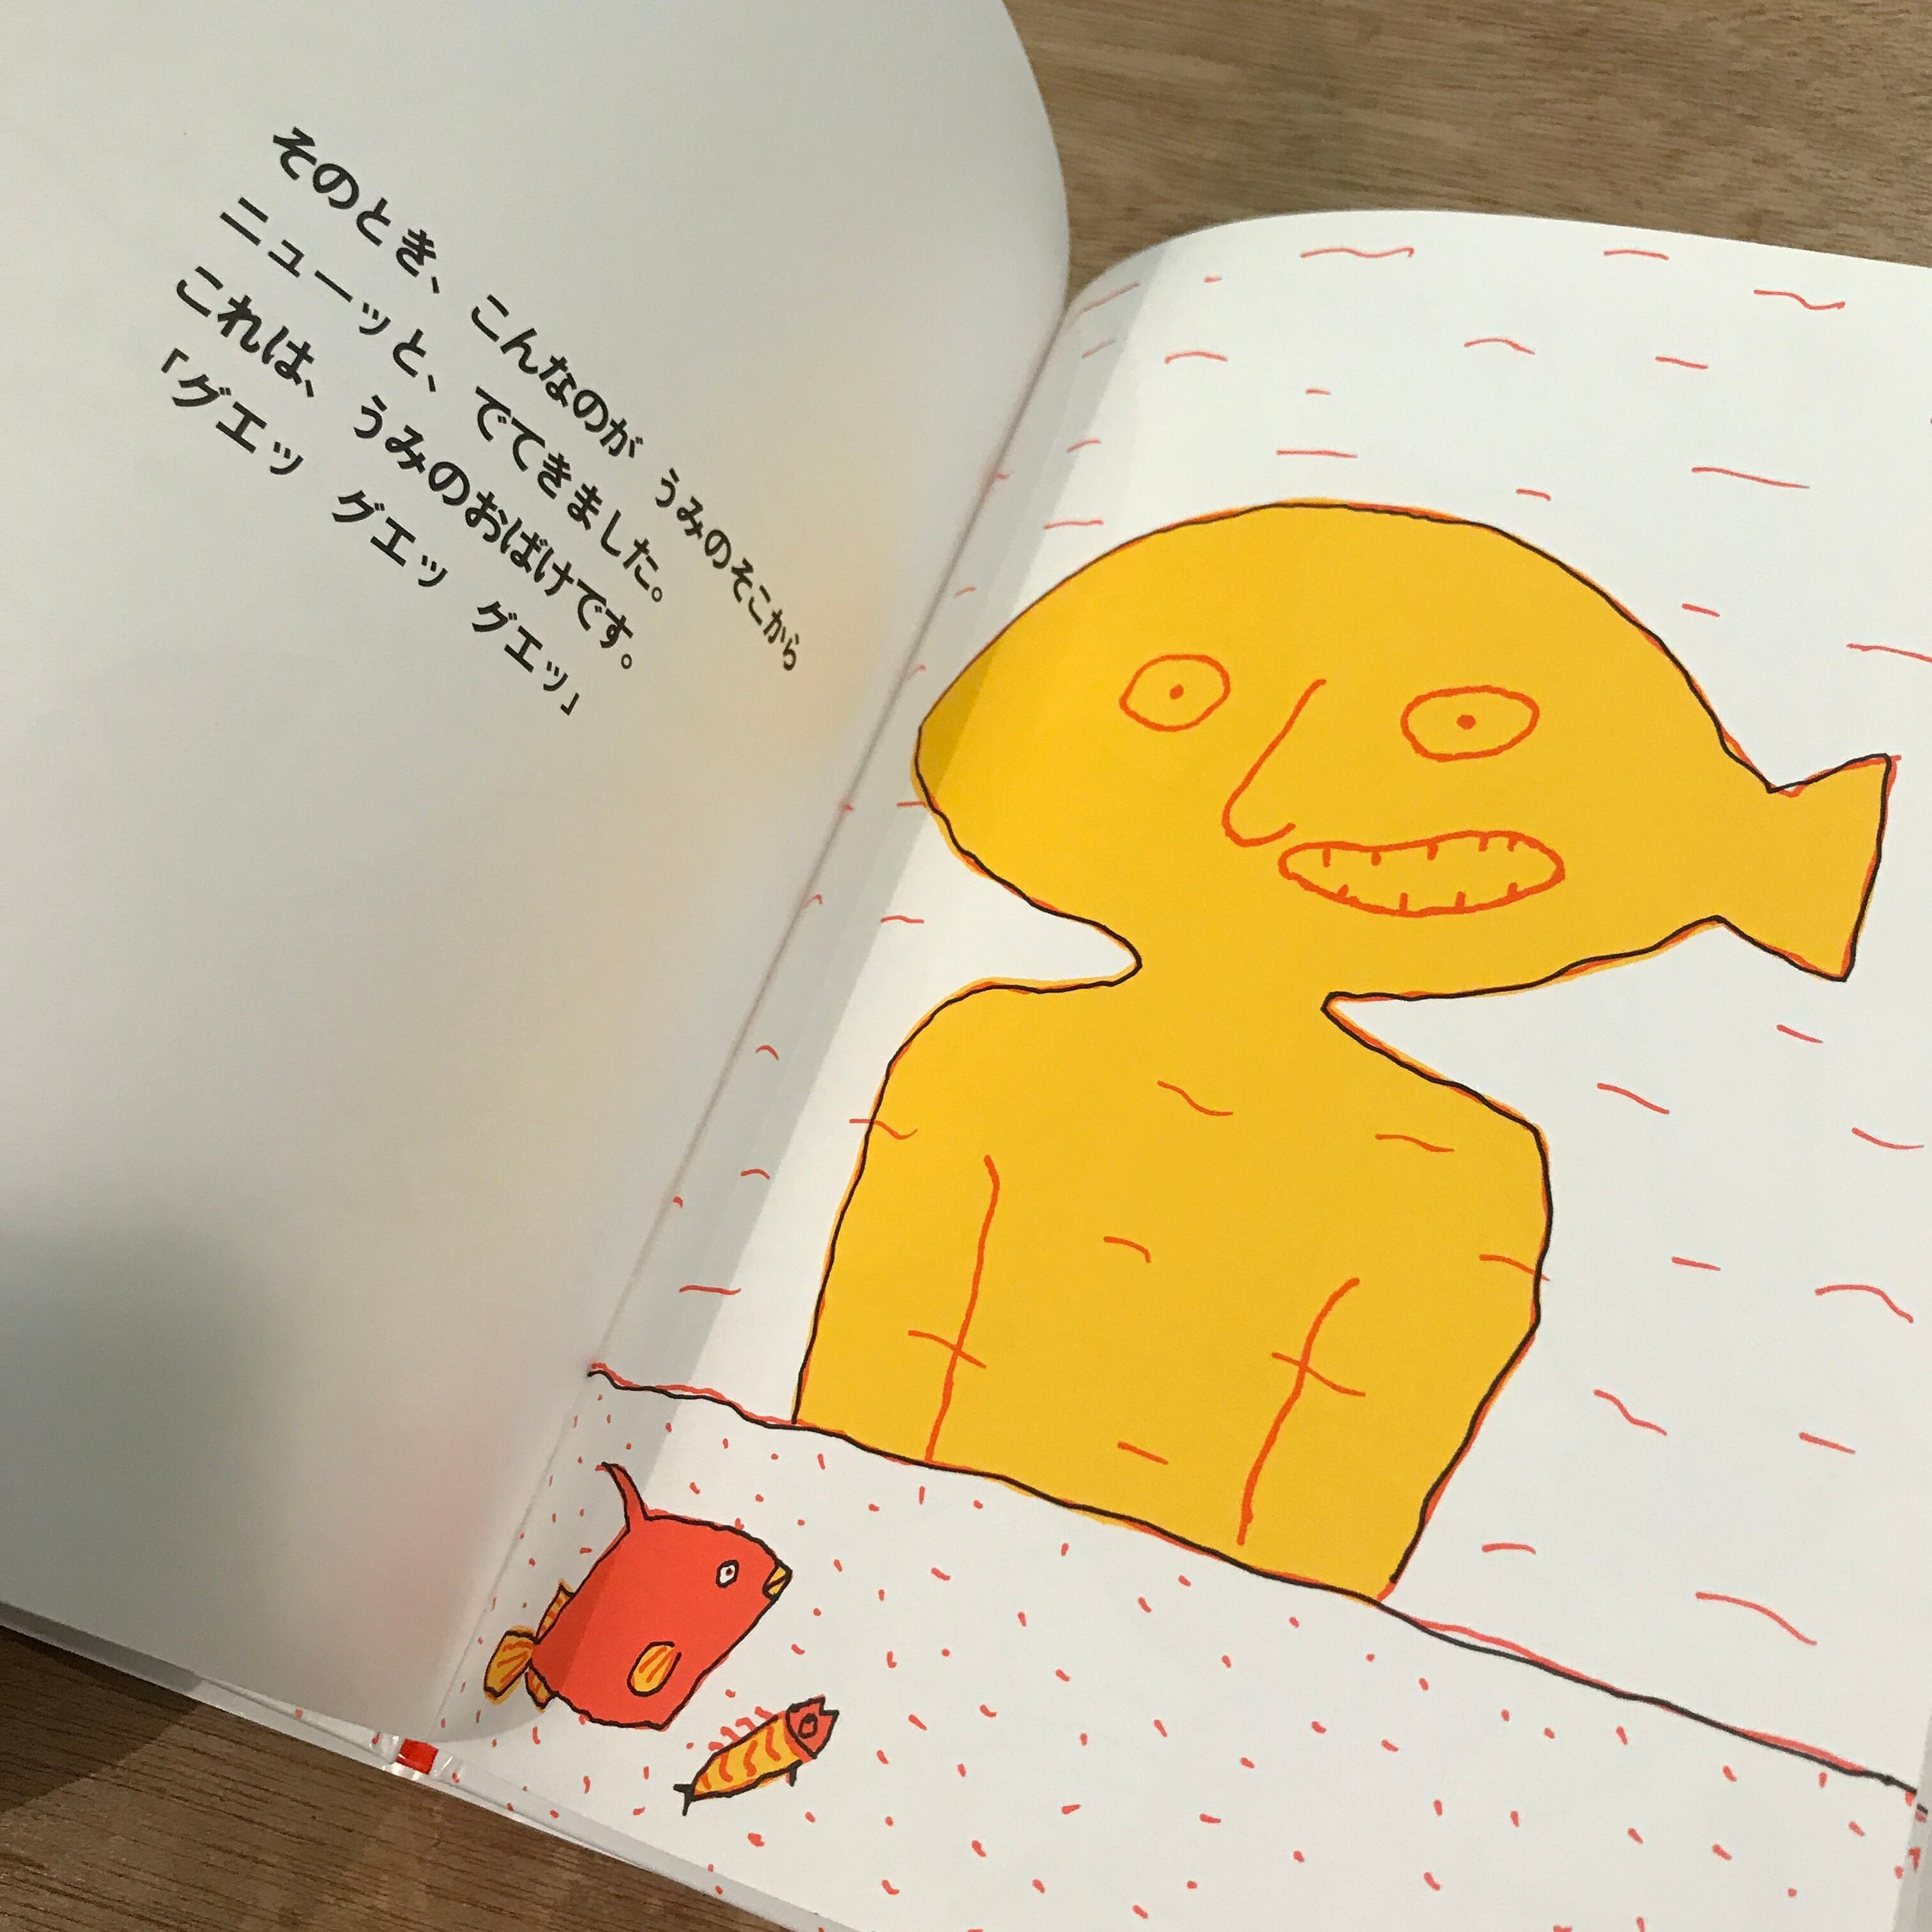 そのとき、 こんなのが うみのそこから
ニューッと、 でてきました。
これは、 うみのおばけです。
「グエッ グエッ グエッ」